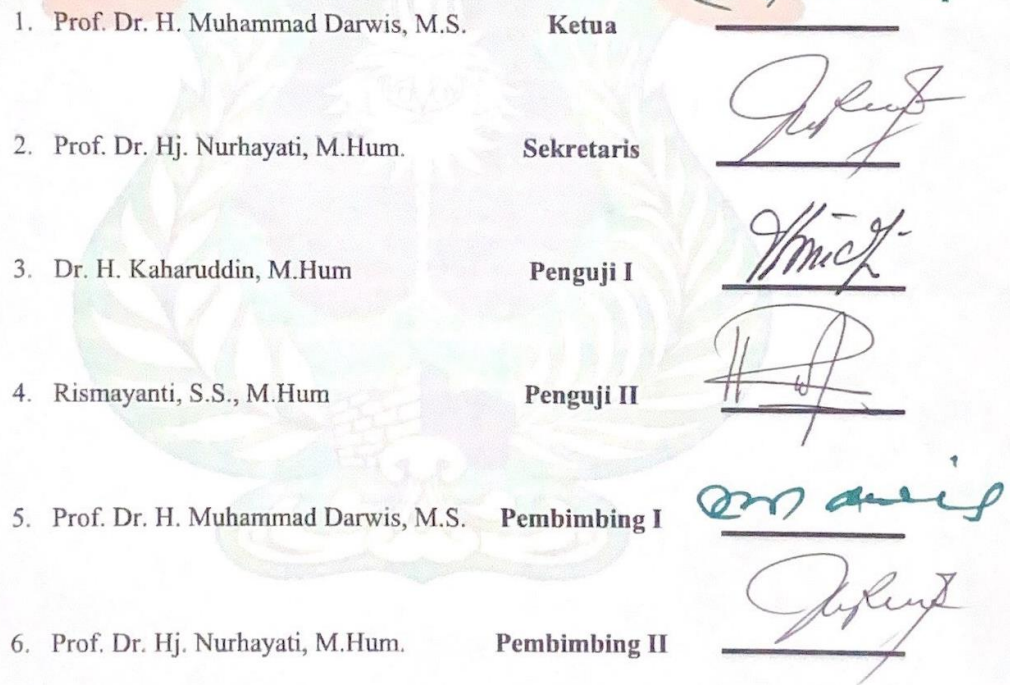 1. Prof. Dr. H. Muhammad Darwis, M.S. Ketua
2. Prof. Dr. Hj. Nurhayati, M.Hum. Sekretaris
3. Dr. H. Kaharuddin, M.Hum Penguji I
4. Rismayanti, S.S., M.Hum Penguji II
5. Prof. Dr. H. Muhammad Darwis, M.S. Pembimbing I
6. Prof. Dr. Hj. Nurhayati, M.Hum. Pembimbing II